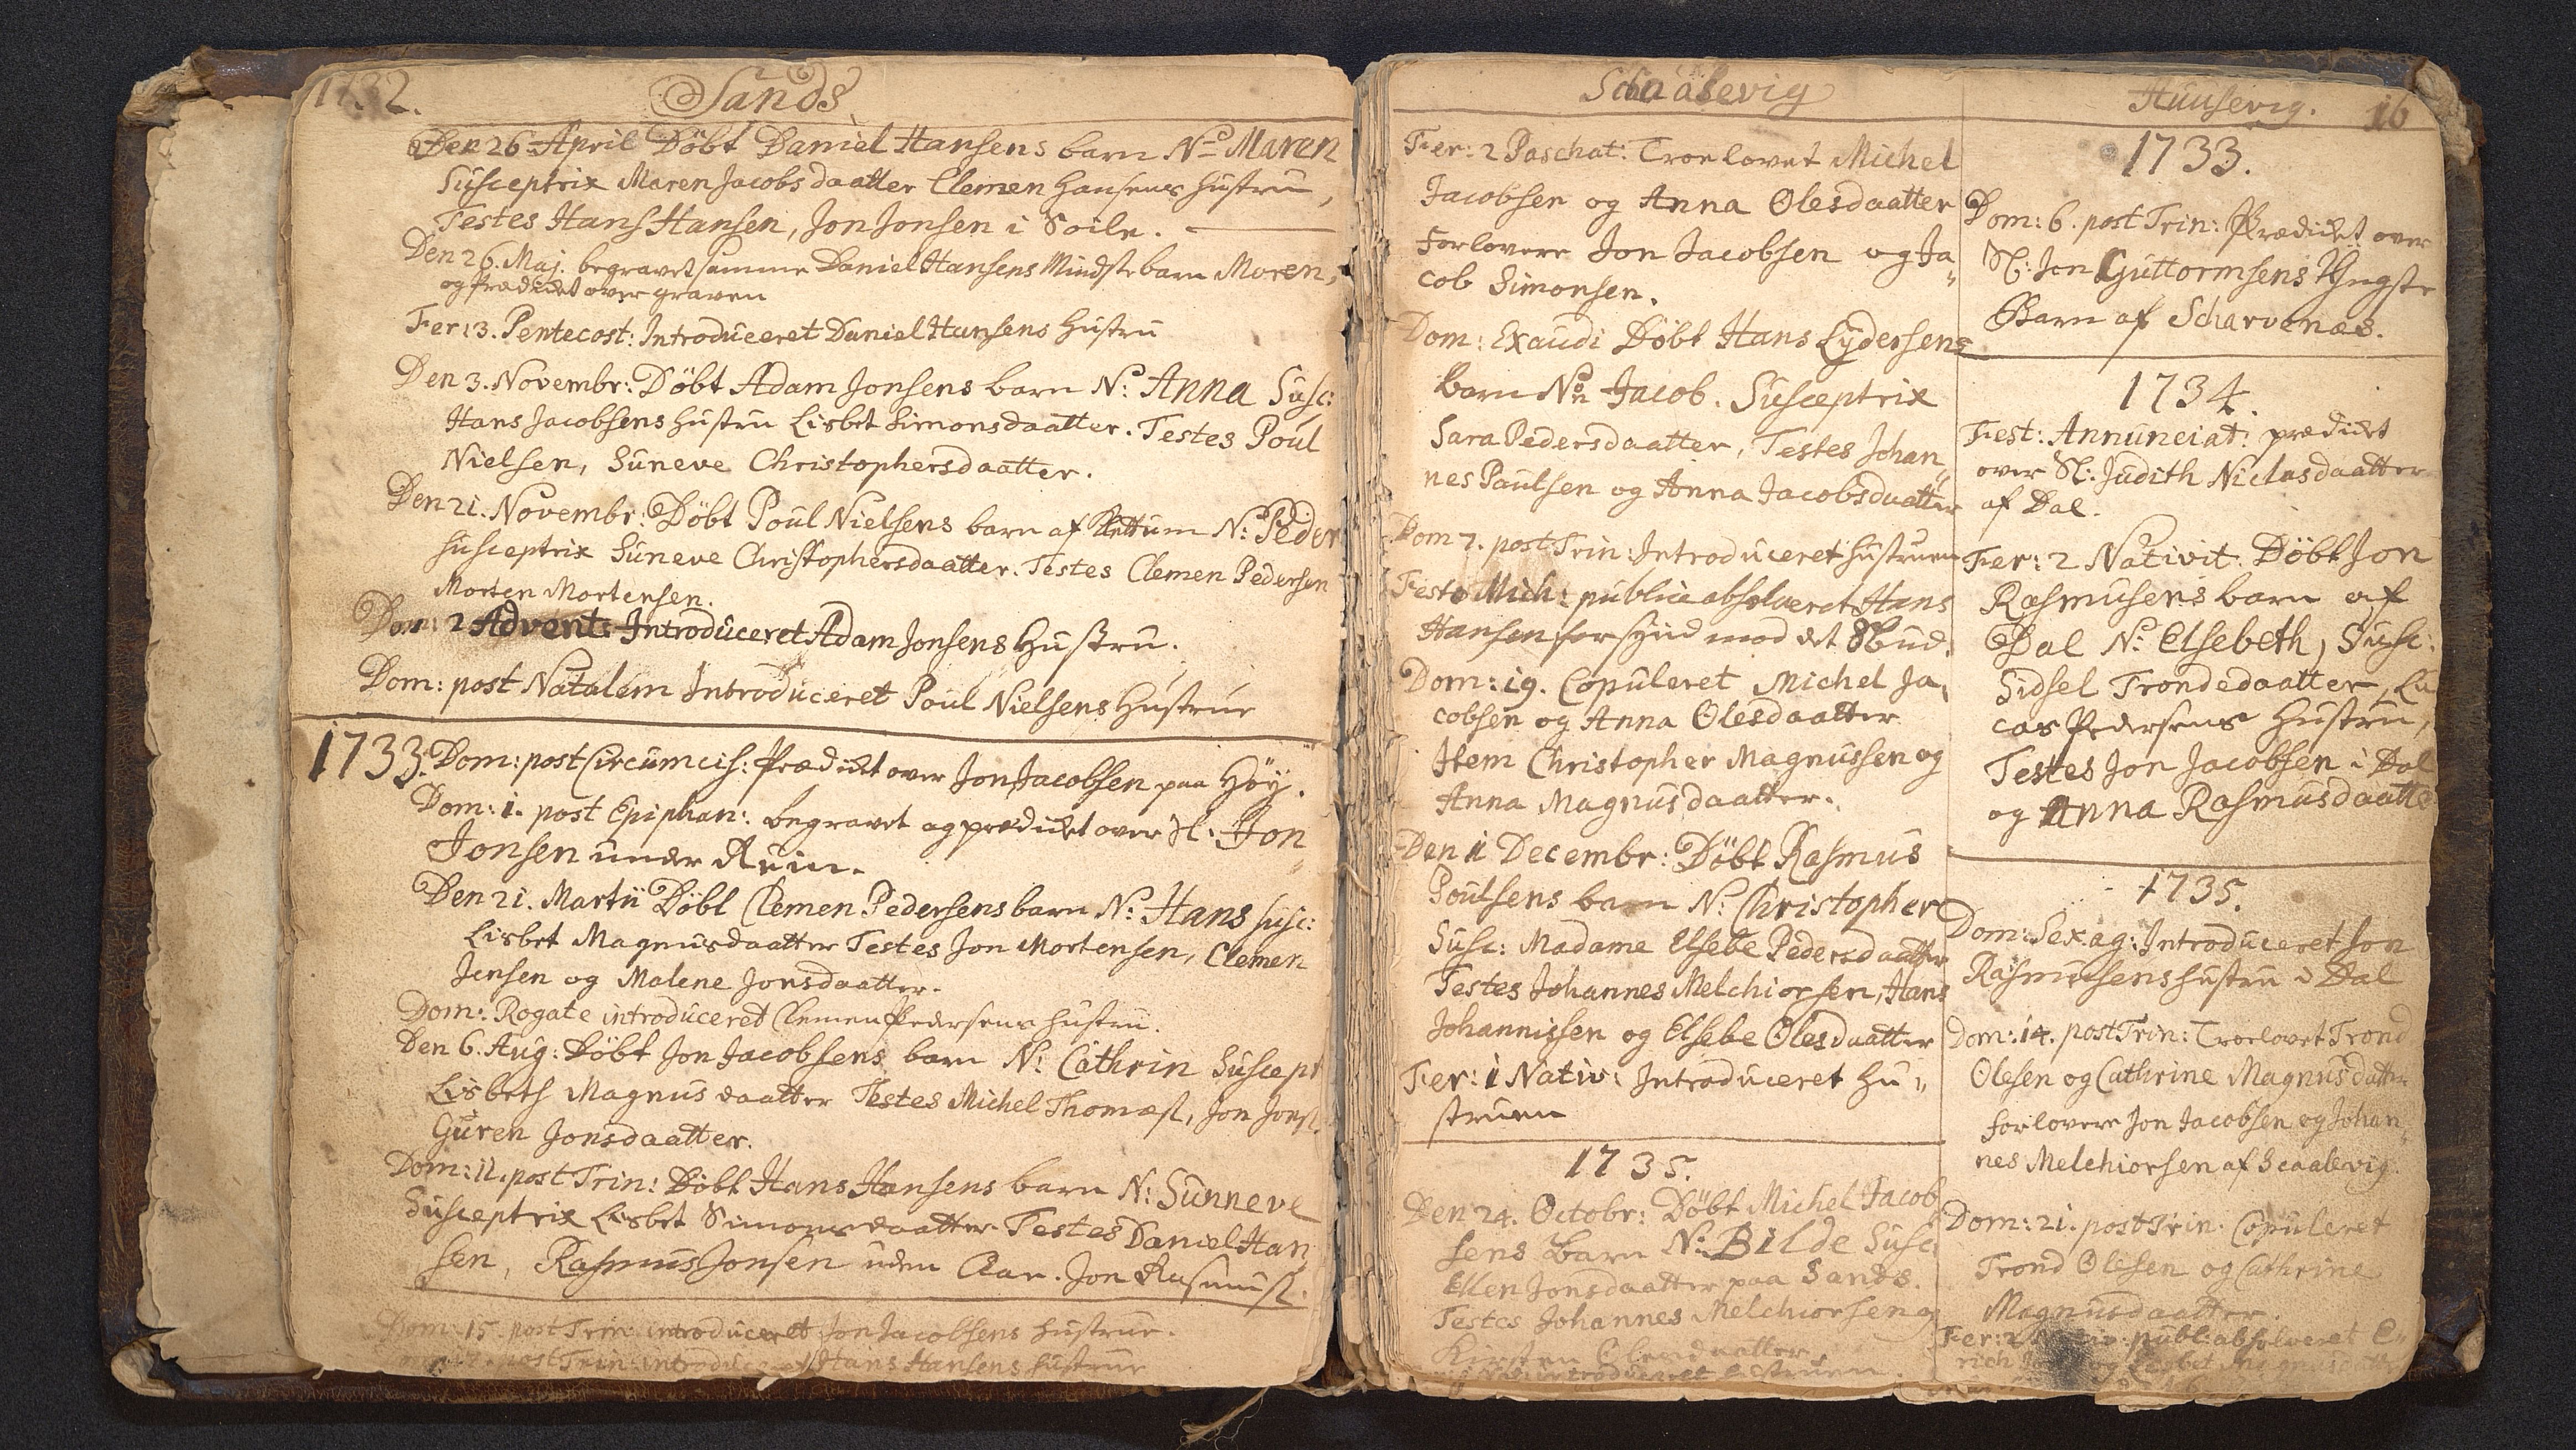 1732.
Sands
Den 26 April Döbt Daniel Hansens barn N: Maren
Susceptrix Maren Jacobsdaatter Clemen Hansens hustru,
Testes Hans Hansen, Jon Jonsen i Soile.
Den 26. Maj. begravet samme Daniel Hansens Mindste barn Maren,
og prædicket over graven
Fer: 3. Pentecost: Introduceret Daniel Hansens Hustru
Den 3. Novembr: Döbt Adam Jonsens barn N: Anna Susc:
Hans Jacobsens hustru Lisbet Simonsdaatter. Testes Poul
Nielsen, Suneve Christophersdaatter.
Den 21. Novembr: Döbt Poul Nielsens barn af N: Peder
susceptrix Suneve Christophersdaatter. Testes Clemen Pedersen
Morten Mortensen.
Dom: 2 Advent: Introduceret Adam Jonsens Hustru.
Dom: post Natalem Introduceret Poul Nielsens Hustrue
1733. Dom: post Circumcis: Prædicket over Jon Jacobsen paa Höÿ.
Dom: 1. post Epiphan: begravet og prædicket over Sl: Jon
Jonsen under
Den 21. Martii Döbt Clemen Pedersens barn N: Hans susc:
Lisbet Magnusdaatter Testes Jon Mortensen, Clemen
Jensen og Malene Jonsdaatter.
Dom: Rogate introduceret Clemen Pedersens hustru.
Den 6. Aug: Döbt Jon Jacobsens barn N: Cathrin Suscept
Lisbeth Magnusdaatter Testes Michel Thomæs:, Jon Jons:
Guren Jonsdaatter.
Dom: 11. post Trin: Döbt Hans Hansens barn N: Sunneve
Susceptrix Lisbet Simonsdaatter Testes Daniel Han
sen, Rasmus Jonsen uden Aar. Jon Rasmus:
Dom: 15. post Trin: introduceret Jon Jacobsens hustrue.
post Trin: introduceret Hans Hansens hustrue
Schaalevig
Fer: 2 Paschat: Troelovet Michel
Jacobsen og Anna Olesdaatter
Forlovere Jon Jacobsen og Ja
cob Simonsen.
Dom: Exaudi Döbt Hans Lydersens
barn N: Jacob. Susceptrix
Sara Pedersdaatter, Testes Johan
nes Paulsen og Anna Jacobsdaatter
Dom 7. post Trin: Introduceret hustruen
Festo Mich: publice absolveret Hans
Hansen for synd mod det 8 bud.
Dom: 19. Copuleret Michel Ja
cobsen og Anna Olesdaatter
Item Christopher Magnussen og
Anna Magnusdaatter.
Den 11 Decembr: Döbt Rasmus
Poulsens barn N: Christopher
Susc: Madame Elsebe Pedersdaatter
Testes Johannes Melchiorsen, Hans
Johannissen og Elsebe Olesdaatter
Fer: 1 Nativ: Introduceret hu
struen
1735.
Den 24. Octobr: Döbt Michel Jacob
sens barn N: Bilde Susc:
Ellen Jonsdaatter paa Sands.
Testes Johannes Melchiorsen og
Kirsten Olesdaatter,
introduceret hustruen.
Huusevig.
16
1733.
Dom: 6. post Trin: Prædicket over
Sl: Jon Guttormsens Yngste
Barn af Scharvenæs.
1734.
Fest: Annunciat: prædicket
over Sl: Judith Niclasdaatter
af Dal.
Fer: 2 Nativit. Döbt Jon
Rasmusens barn af
Dal N: Elsebeth, Susc:
Sidsel Trondedaatter, Lu
cas Pedersens Hustru,
Testes Jon Jacobsen i Dal
og Anna Rasmusdaatter
1735.
Dom: Sexag: Introduceret Jon
Rasmusens hustru i Dal
Dom: 14. post Trin: Troelovet Trond
Olesen og Cathrine Magnusdatter
forlovere Jon Jacobsen og Johan
nes Melchiorsen af Scaalevig.
Dom: 21. post Trin. Copuleret
Trond Olesen og Cathrine
Magnusdaatter.
Fer: 2 publ: absolveret E
rich og Lisbet Magnusdatter